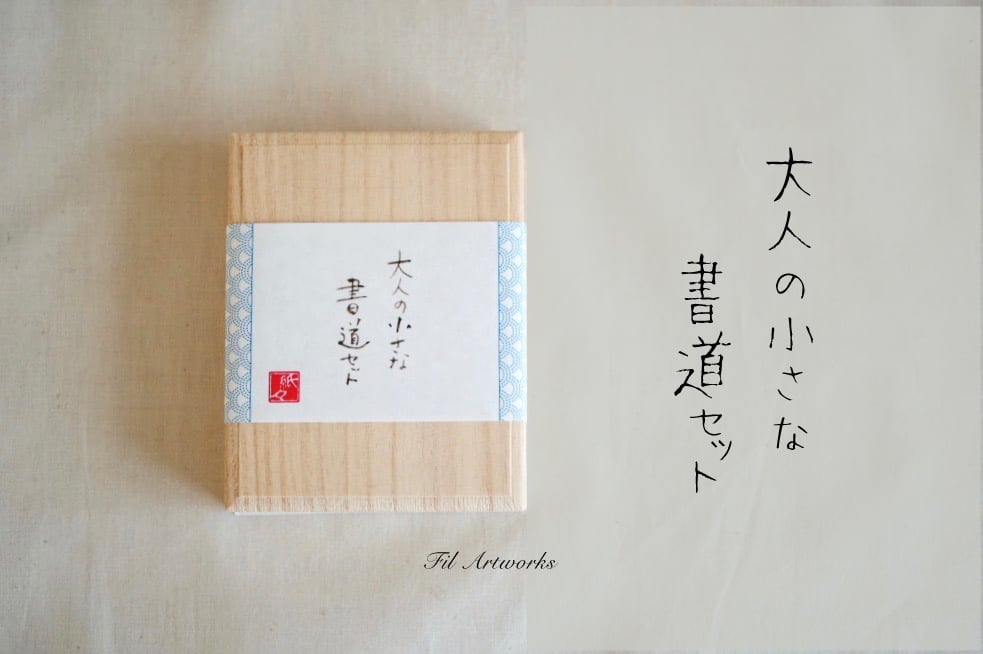 大人の小さな
書道セット
紙々
大人の小さな
書道セット
Fil Artworks